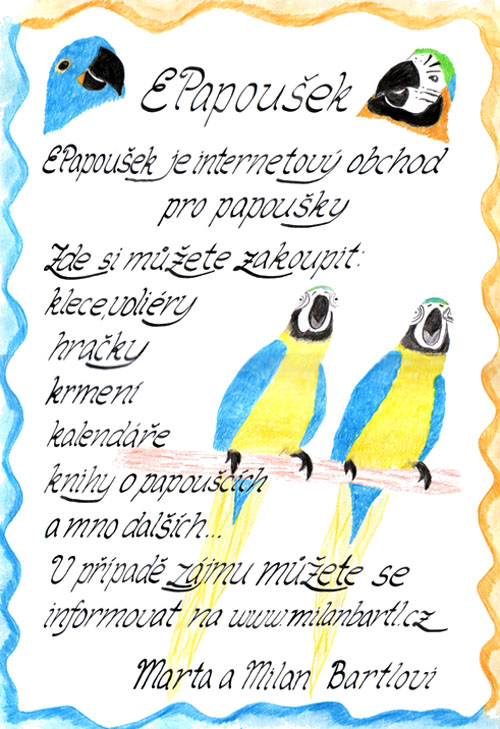 EPapoušek
EPapoušek je internetový obchod
pro papoušky
Zde si můžete zakoupit:
klece, voliéry
hračky
krmení
kalendáře
knihy o papoušcích
a mno dalších...
V případě zájmu můžete se
informovat na www.milanbartl.cz
Marta a Milan Bartlovi